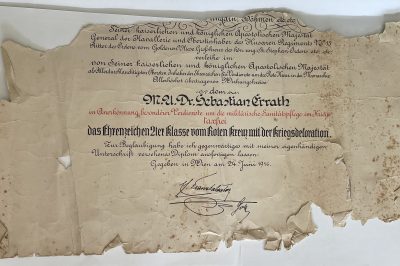 Ungarn, Böhmen etc etc
Seiner kaiserlichen und königlichen Apostolischen Majestät
General der Kavallerie und Oberstinhaber des Husaren Regiments Nº 13
Ritter des Ordens vom Goldenen Vlies Großkreuz des kön. ung. St. Stephan Ordens etc. etc.
verleihe im
von Seiner kaiserlichen und königlichen Apostolischen Majestät
um das Rote Kreuz
Allerhöchst übertragenen Wirkungskreise
dem
M.U.Dr. Sebastian Errath
in Anerkennung besonderer Verdienste um die militärische Sanitätspflege im Kriege
taxfrei
das Ehrenzeichen 2ter Klasse vom Roten Kreuz mit der Kriegsdekoration.
Zur Beglaubigung habe ich gegenwärtiges mit meiner eigenhändigen
Unterschrift versehenes Diplom ausfertigen lassen.
Gegeben in Wien am 24. Juni 1916.